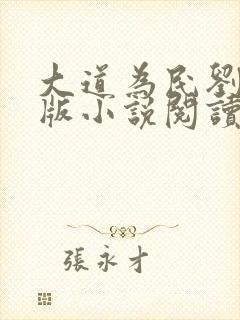 大道為民劉
版小說閱讀
張永才